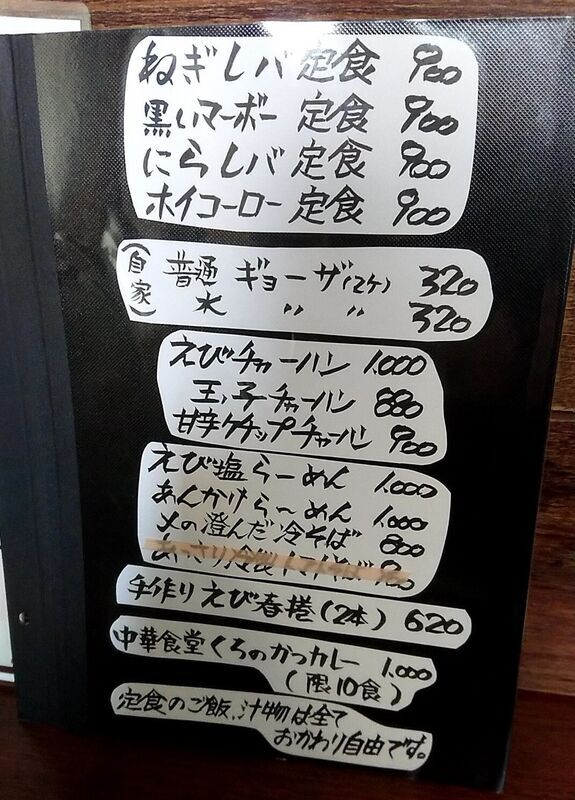 ねぎレバ定食 900
黒いマーボー定食 900
にらレバ定食 900
ホイコーロー定食 900
(自家) 普通 ギョーザ(12ケ) 320
水 〃 〃 320
えびチャーハン 1,000
玉子チャーハン 880
甘辛ケチップチャーハン 900
えび塩らーめん 1,000
あんかけらーめん 1,000
〆の澄んだ冷そば 800
あっさり冷製トマトそば
手作りえび春捲(2本) 620
中華食堂くろのかつカレー 1,000
(限10食)
定食のご飯、汁物は全て
おかわり自由です。